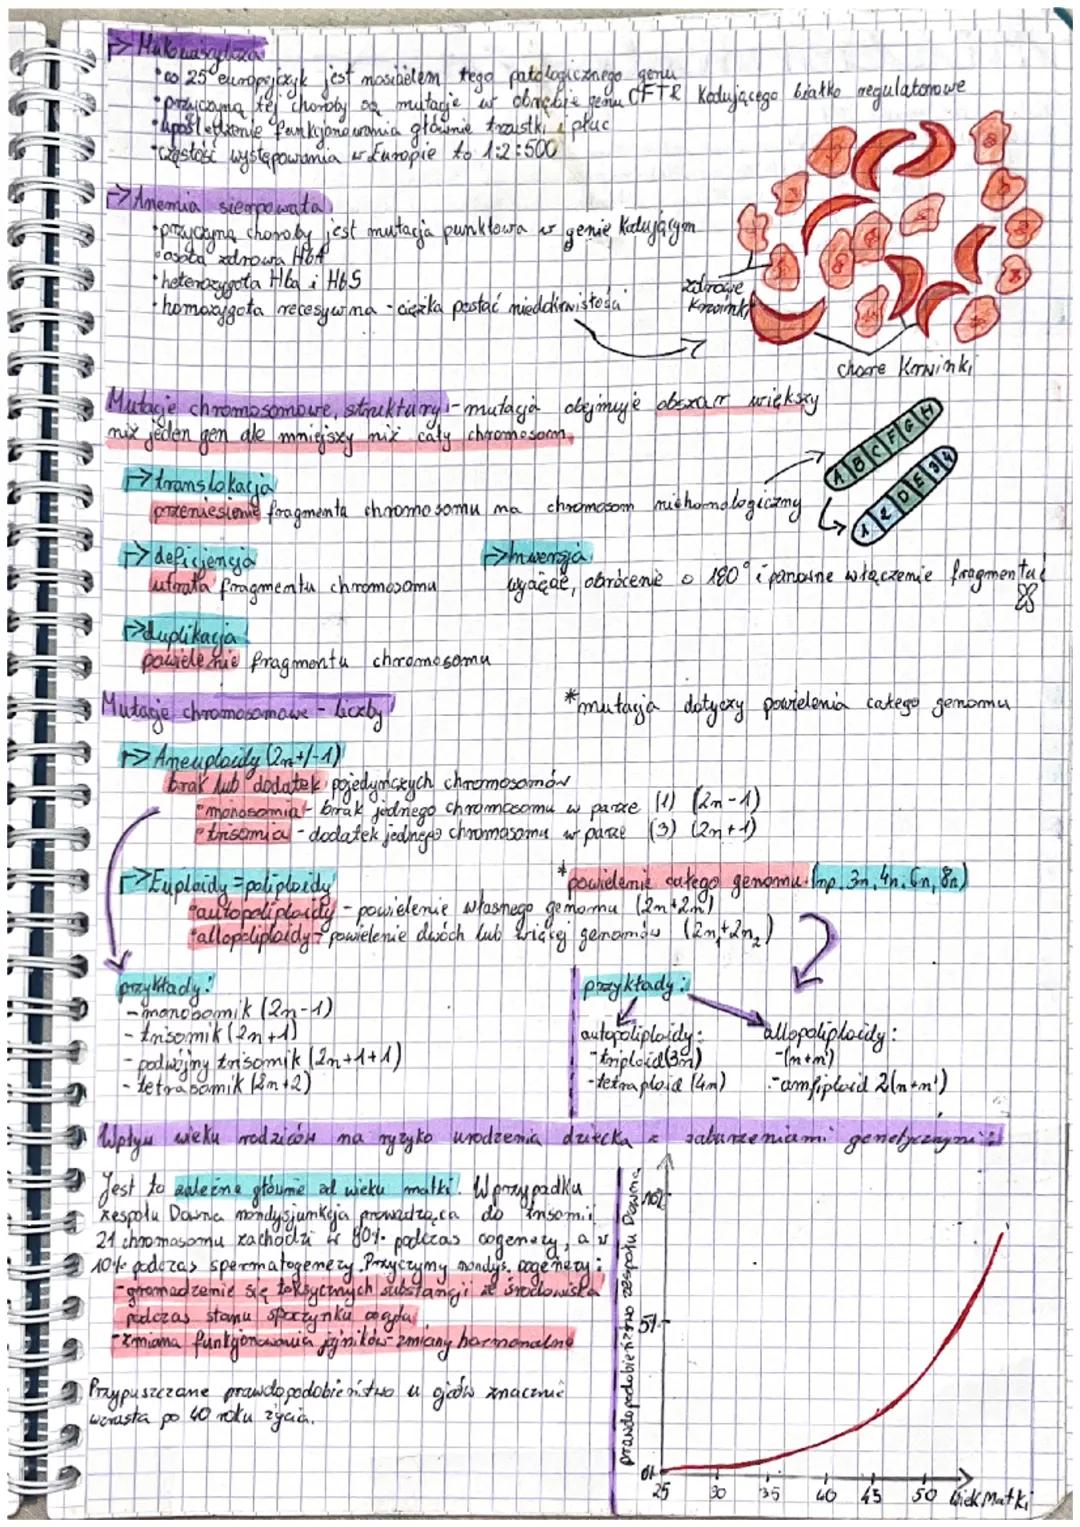 → Mukowiscydoza
• co 25 europejczyk jest nosicielem tego patologicznego genu
• przyczyną tej choroby są mutacje w obrębie genu CFTR kodującego białko regulatorowe
• upośledzenie funkcjonowania głównie trzustki i płuc
• częstość występowania w Europie to 1:2:500
→ Anemia sierpowata
• przyczyną choroby jest mutacja punktowa w genie kodującym
• osoba zdrowa HbA
• heterozygota Hba i HbS
• homozygota recesywna - ciężka postać niedokrwistości
zdrowe
krwinki
chore krwinki
Mutacje chromosomowe, struktury - mutacja obejmuje obszar większy
niż jeden gen ale mniejszy niż cały chromosom.
→ translokacja
przeniesienie fragmenta chromosomu na chromosom niehomologiczny
A B C F G H
1 2 D E 3 4
→ deficjencja
utrata fragmentu chromosomu
→ Inwersja
obrócenie o 180° i ponowne włączenie fragmentu
→ duplikacja
powielenie fragmentu chromosomu
Mutacje chromosomowe - liczby
*mutacja dotyczy powielenia całego genomu
→ Aneuploidy (2n+/-1)
brak lub dodatek pojedynczych chromosomów
• monosomia - brak jednego chromosomu w parze (1) (2n-1)
• trisomia - dodatek jednego chromosomu w parze (3) (2n+1)
→ Euploidy = poliploidy
*powielenie całego genomu (np. 3n, 4n, 6n, 8n)
• autopoliploidy - powielenie własnego genomu (2n+2n)
• allopoliploidy - powielenie dwóch lub więcej genomów (2n₁+2n₂)
przykłady:
- monosomik (2n-1)
- trisomik (2n+1)
- podwójny trisomik (2n+1+1)
- tetrasomik (2n+2)
przykłady:
autopoliploidy:
- triploid (3n)
- tetraploid (4n)
allopoliploidy:
- (n+n')
- amfiploid 2(n+n')
Wpływ wieku rodziców na ryzyko urodzenia dziecka z zaburzeniami genetycznymi:
Jest to zależne głównie od wieku matki. W przypadku
zespołu Downa nondysjunkcja prowadząca do trisomii
21 chromosomu zachodzi w 90% podczas oogenezy, a w
10% podczas spermatogenezy. Przyczyny nondys. oogenezy:
- gromadzenie się toksycznych substancji ze środowiska
podczas stanu spoczynku oocytu
- zmiana funkcjonowania jajników - zmiany hormonalne
Przypuszczane prawdopodobieństwo u ojców znacznie
wzrasta po 40 roku życia.
prawdopodobieństwo zespołu Downa
10%
5%
0%
25 30 35 40 45 50 Wiek Matki